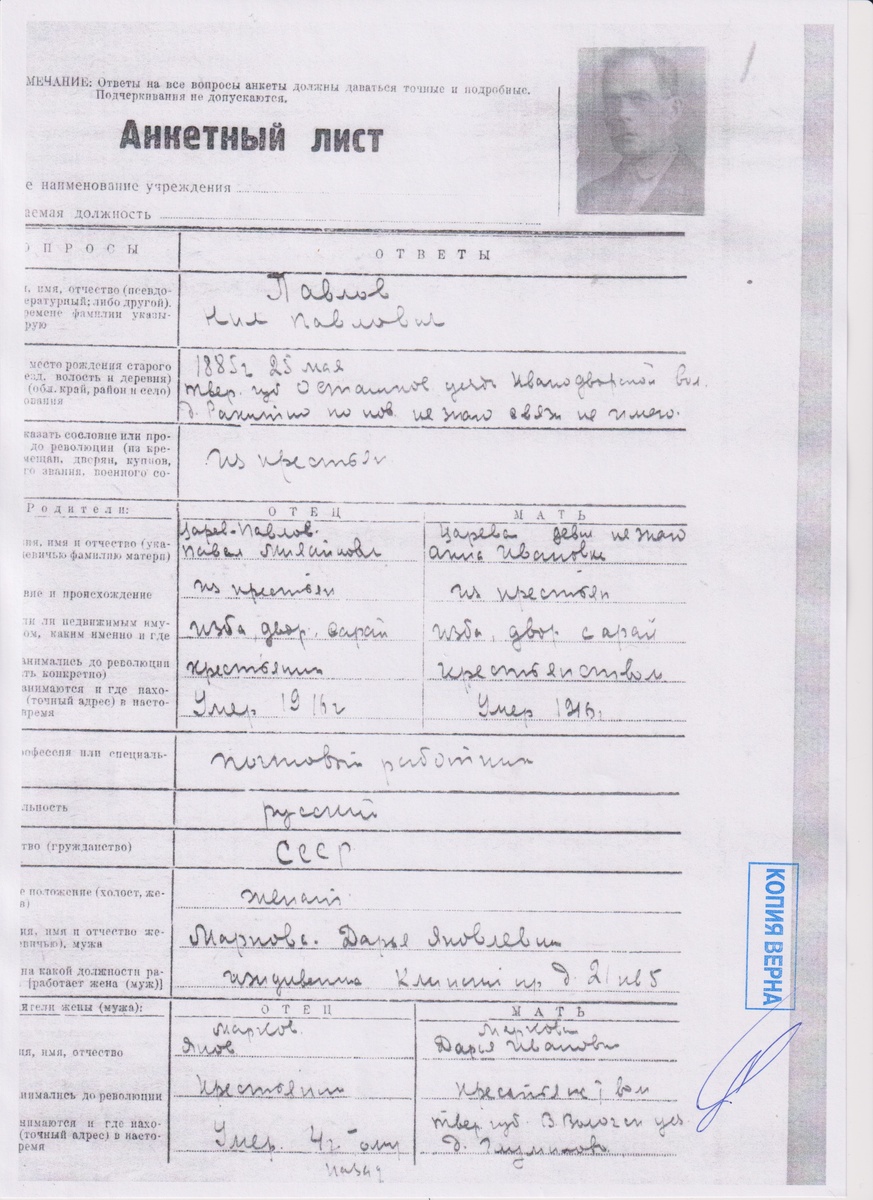 МЕЧАНИЕ: Ответы на все вопросы анкеты должны даваться точные и подробные.
Подчеркивания не допускаются.
1
Анкетный лист
е наименование учреждения
аемая должность
ОПРОСЫ ОТВЕТЫ
, имя, отчество (псевдо-
ературный; либо другой).
ремене фамилии указы-
рую
Павлов
Нил Павлович
место рождения старого
езд, волость и деревня)
(обл. край, район и село)
ования
1885г 25 мая
твер. губ Осташков уезд Иванодворской вол.
д. по нов. не знаю связи не имею.
казать сословие или про-
до революции (из кре-
мещан, дворян, купцов,
го звания, военного со-
из крестьян
Родители: ОТЕЦ МАТЬ
ия, имя и отчество (ука-
девичью фамилию матери)
Царев-Павлов. Царева девич не знаю
Павел Анна Ивановна
вие и происхождение из крестьян из крестьян
ли ли недвижимым иму-
ом, каким именно и где
изба, двор, сарай изба, двор сарай
анимались до революции
ть конкретно)
крестьянин крестьянством
анимаются и где нахо-
(точный адрес) в насто-
время
Умер 1916г Умер 1916г.
офессия или специаль- почтовый работник
льность русский
тво (гружданство) СССР
е положение (холост, же-
а) женат
ия, имя и отчество же-
вичью), мужа Маркова. Дарья Яковлевна
на какой должности ра-
[работает жена (муж)] иждивенка пр д. 21 кв 5
ители жены (мужа): ОТЕЦ МАТЬ
ия, имя, отчество
Марков Маркова
Яков Дарья Ивановна
нимались до революции крестьянин
нимаются и где нахо-
(точный адрес) в насто-
ремя
Умер. твер губ. В. Волоч уез.
назад
КОПИЯ ВЕРНА